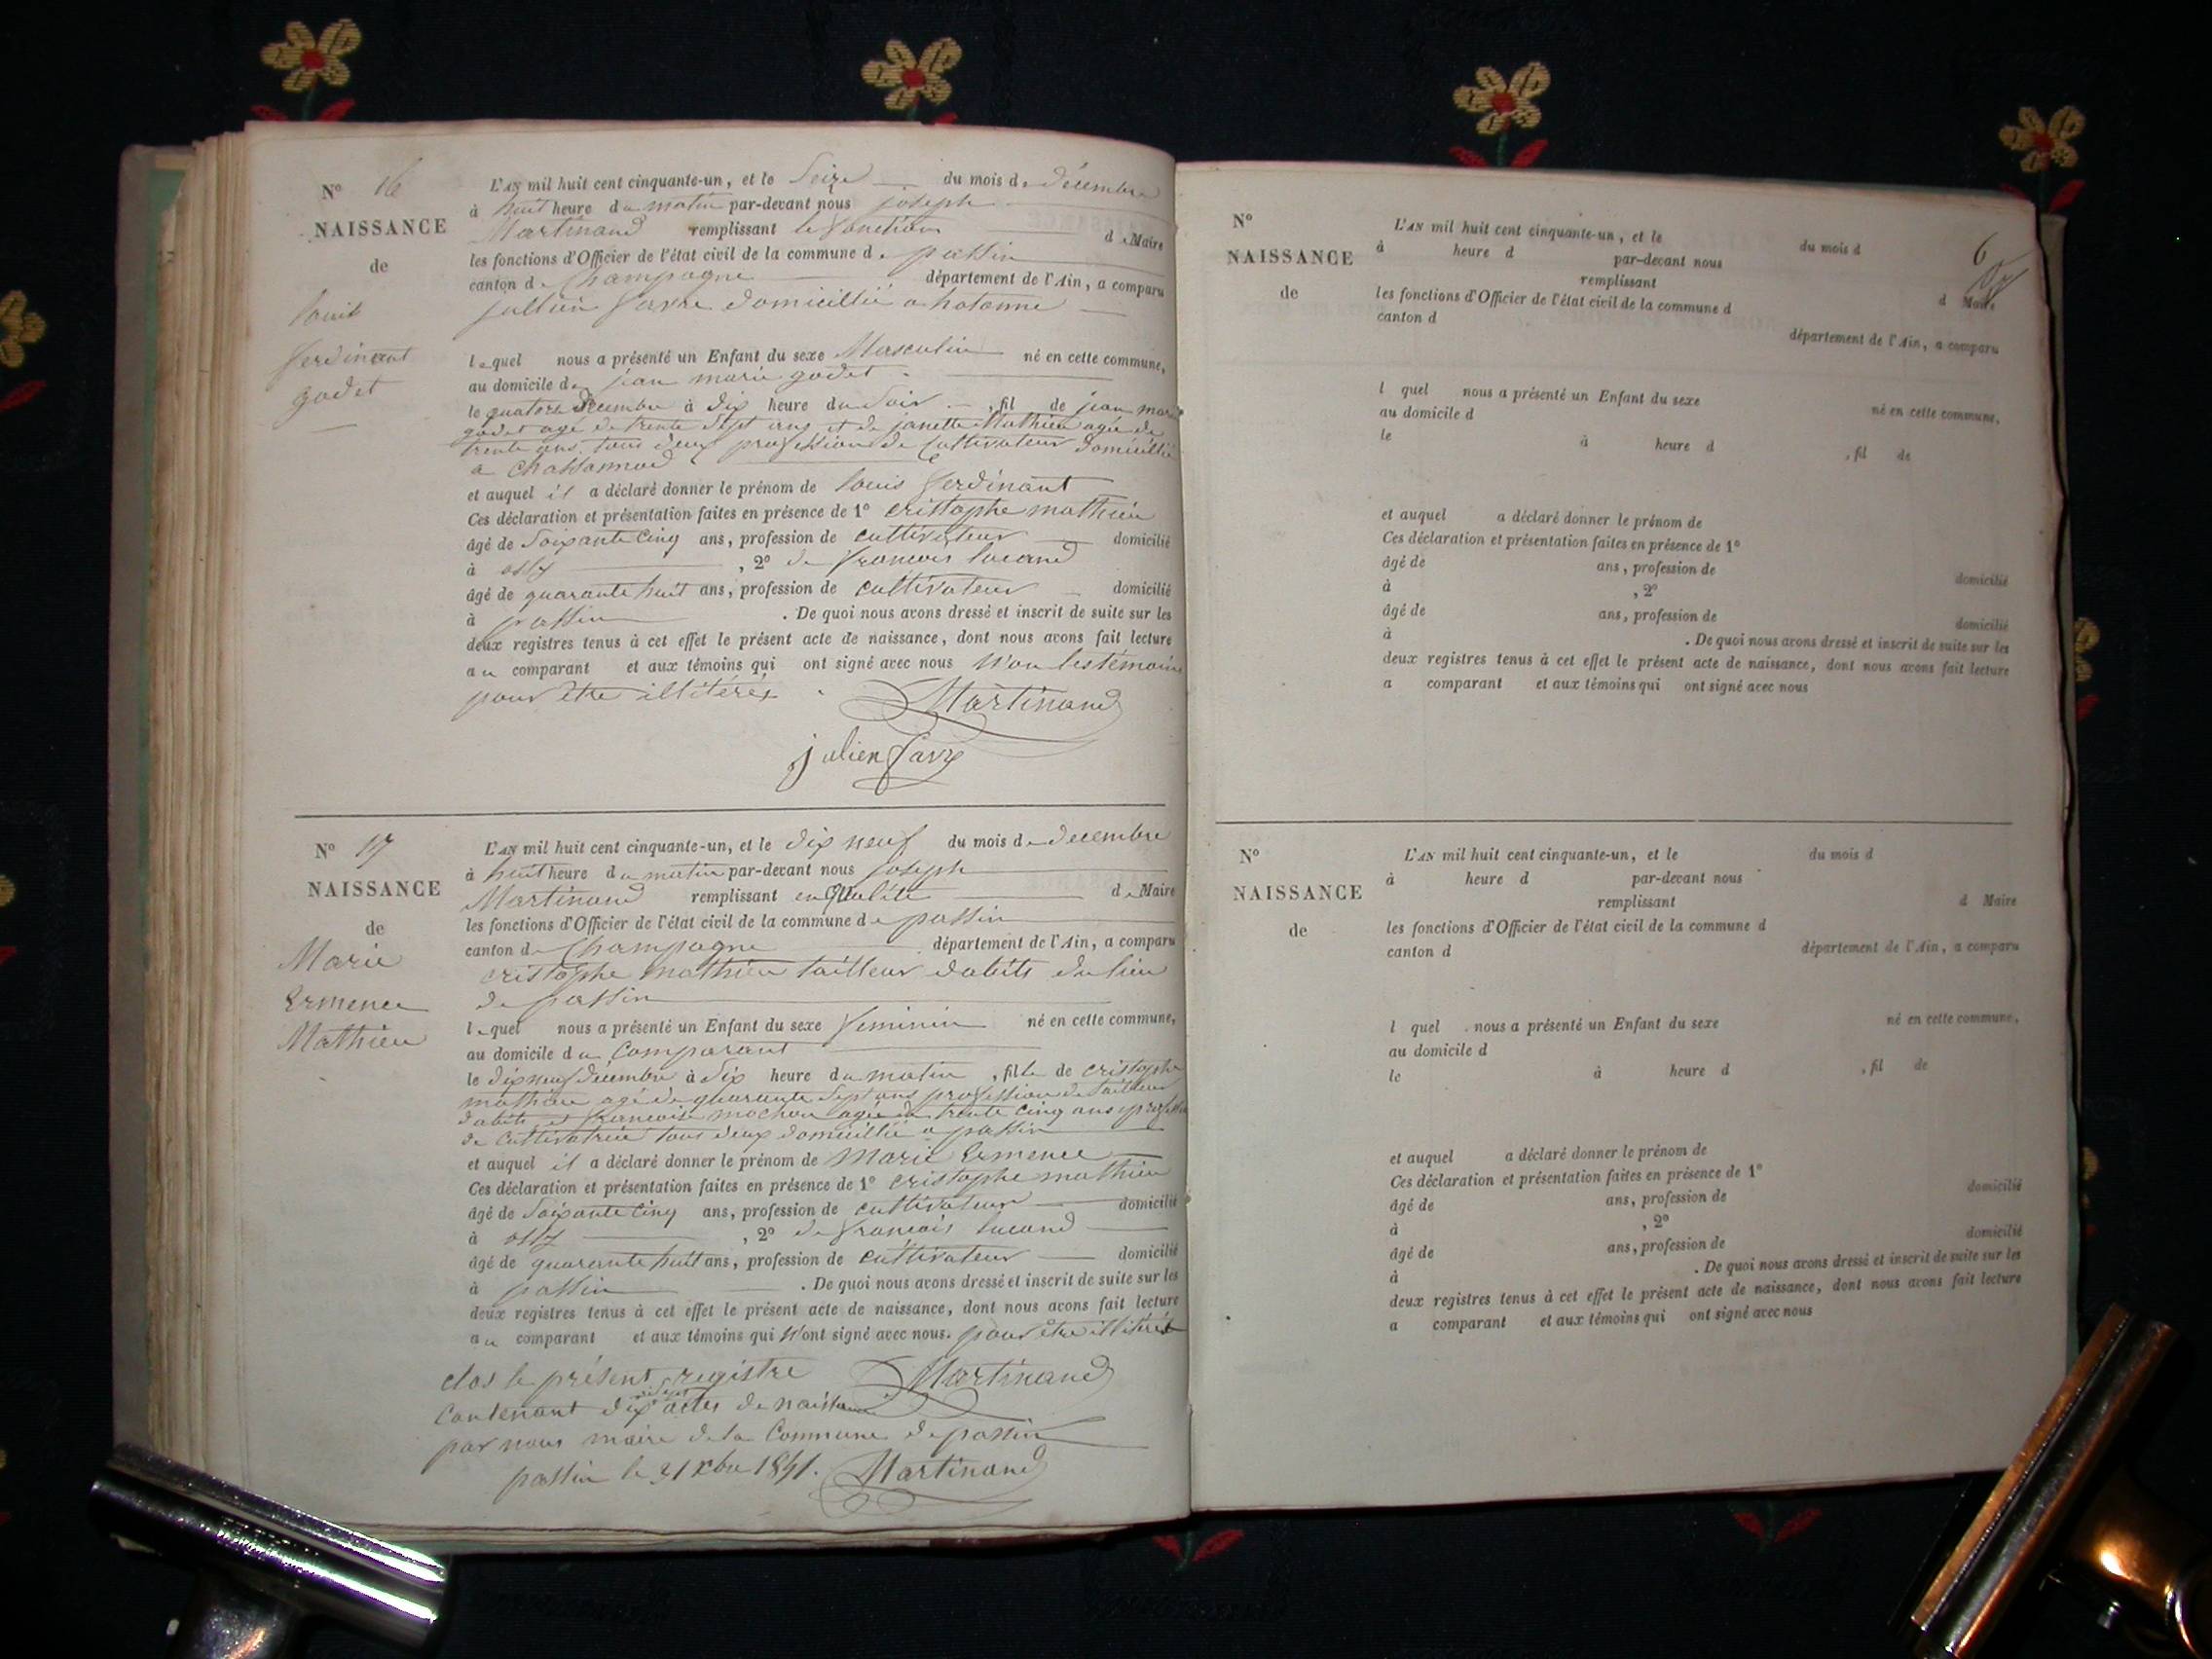 N° 16
NAISSANCE
de
louis
ferdinant
godet
L'AN mil huit cent cinquante-un, et le Seize du mois de décembre
à huit heure du matin par-devant nous joseph
Martinand remplissant le fonction de Maire
les fonctions d'Officier de l'état civil de la commune de passin
canton de Champagne département de l'Ain, a comparu
jullien favre domicillié a hotonne
lequel nous a présenté un Enfant du sexe Masculin né en cette commune,
au domicile de jean marie godet
le quatorze décembre à dix heure du soir, fil de jean marie
godet agé de trente sept ans et de janette Mathieu agée de
trente ans tous deux profession de Cultivateur domicillié
a Chassonnod
et auquel il a déclaré donner le prénom de louis ferdinant
Ces déclaration et présentation faites en présence de 1° cristophe mathieu
âgé de soixante cinq ans, profession de cultivateur domicilié
à ossy, 2° de francois lucand
âgé de quarante huit ans, profession de cultivateur domicilié
à passin. De quoi nous avons dressé et inscrit de suite sur les
deux registres tenus à cet effet le présent acte de naissance, dont nous avons fait lecture
au comparant et aux témoins qui ont signé avec nous Non les témoins
pour être illitérés
Martinand
julien favre
N° 17
NAISSANCE
de
Marie
Ermence
Mathieu
L'AN mil huit cent cinquante-un, et le dix neuf du mois de decembre
à huit heure du matin par-devant nous joseph
Martinand remplissant en qualité de Maire
les fonctions d'Officier de l'état civil de la commune de passin
canton de Champagne département de l'Ain, a comparu
cristophe mathieu tailleur dabits du lieu
de passin
lequel nous a présenté un Enfant du sexe feminin né en cette commune,
au domicile du Comparant
le dix neuf décembre à six heure du matin, fille de cristophe
mathieu agé de quarante sept ans profession de tailleur
dabits et francoise mochon agée de trente cinq ans profession
de cultivatrice tous deux domicillié a passin
et auquel il a déclaré donner le prénom de Marie Ermence
Ces déclaration et présentation faites en présence de 1° cristophe mathieu
âgé de soixante cinq ans, profession de cultivateur domicilié
à ossy, 2° de francois lucand
âgé de quarante huit ans, profession de cultivateur domicilié
à passin. De quoi nous avons dressé et inscrit de suite sur les
deux registres tenus à cet effet le présent acte de naissance, dont nous avons fait lecture
au comparant et aux témoins qui N'ont signé avec nous. pour être illitérés
clos le présent registre Martinand
Contenant dix sept actes de naissance
par nous maire de la Commune de passin
passin le 31 Xbre 1851. Martinand
6
N°
NAISSANCE
de
L'AN mil huit cent cinquante-un, et le du mois d
à heure d par-devant nous
remplissant d Maire
les fonctions d'Officier de l'état civil de la commune d
canton d département de l'Ain, a comparu
l quel nous a présenté un Enfant du sexe né en cette commune,
au domicile d
le à heure d, fil de
et auquel a déclaré donner le prénom de
Ces déclaration et présentation faites en présence de 1°
âgé de ans, profession de domicilié
à, 2°
âgé de ans, profession de domicilié
à. De quoi nous avons dressé et inscrit de suite sur les
deux registres tenus à cet effet le présent acte de naissance, dont nous avons fait lecture
a comparant et aux témoins qui ont signé avec nous
N°
NAISSANCE
de
L'AN mil huit cent cinquante-un, et le du mois d
à heure d par-devant nous
remplissant d Maire
les fonctions d'Officier de l'état civil de la commune d
canton d département de l'Ain, a comparu
l quel nous a présenté un Enfant du sexe né en cette commune,
au domicile d
le à heure d, fil de
et auquel a déclaré donner le prénom de
Ces déclaration et présentation faites en présence de 1°
âgé de ans, profession de domicilié
à, 2°
âgé de ans, profession de domicilié
à. De quoi nous avons dressé et inscrit de suite sur les
deux registres tenus à cet effet le présent acte de naissance, dont nous avons fait lecture
a comparant et aux témoins qui ont signé avec nous